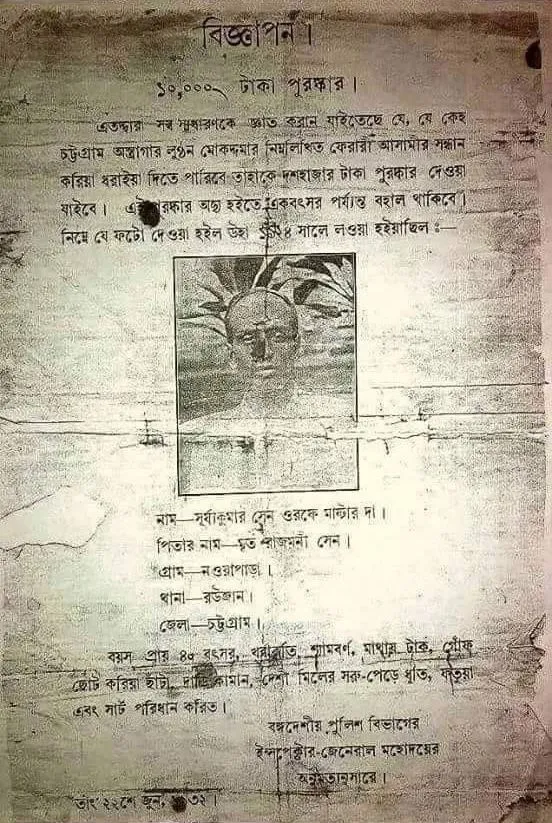 বিজ্ঞাপন।
১০,০০০৲ টাকা পুরস্কার।
এতদ্দ্বারা সর্ব্ব সাধারণকে জ্ঞাত করান যাইতেছে যে, যে কেহ
চট্টগ্রাম অস্ত্রাগার লুণ্ঠন মোকদ্দমার নিম্নলিখিত ফেরারী আসামীর সন্ধান
করিয়া ধরাইয়া দিতে পারিবে তাহাকে দশহাজার টাকা পুরস্কার দেওয়া
যাইবে। এই পুরস্কার অদ্য হইতে একবৎসর পর্য্যন্ত বহাল থাকিবে।
নিম্নে যে ফটো দেওয়া হইল উহা সালে লওয়া হইয়াছিল :—
নাম—সূর্য্যকুমার সেন ওরফে মাষ্টার দা।
পিতার নাম—মৃত রাজমনী সেন।
গ্রাম—নওয়াপাড়া।
থানা—রউজান।
জেলা—চট্টগ্রাম।
বয়স প্রায় ৪০ বৎসর, শ্যামবর্ণ, মাথায় টাক, গোঁফ
ছোট করিয়া ছাঁটা, দাড়ি কামান, দেশী মিলের সরু-পেড়ে ধুতি, ফতুয়া
এবং সার্ট পরিধান করিত।
বঙ্গদেশীয় পুলিশ বিভাগের
ইন্সপেক্টার-জেনেরাল মহোদয়ের
অনুমত্যানুসারে।
তাং ২২শে জুন, ৩২।